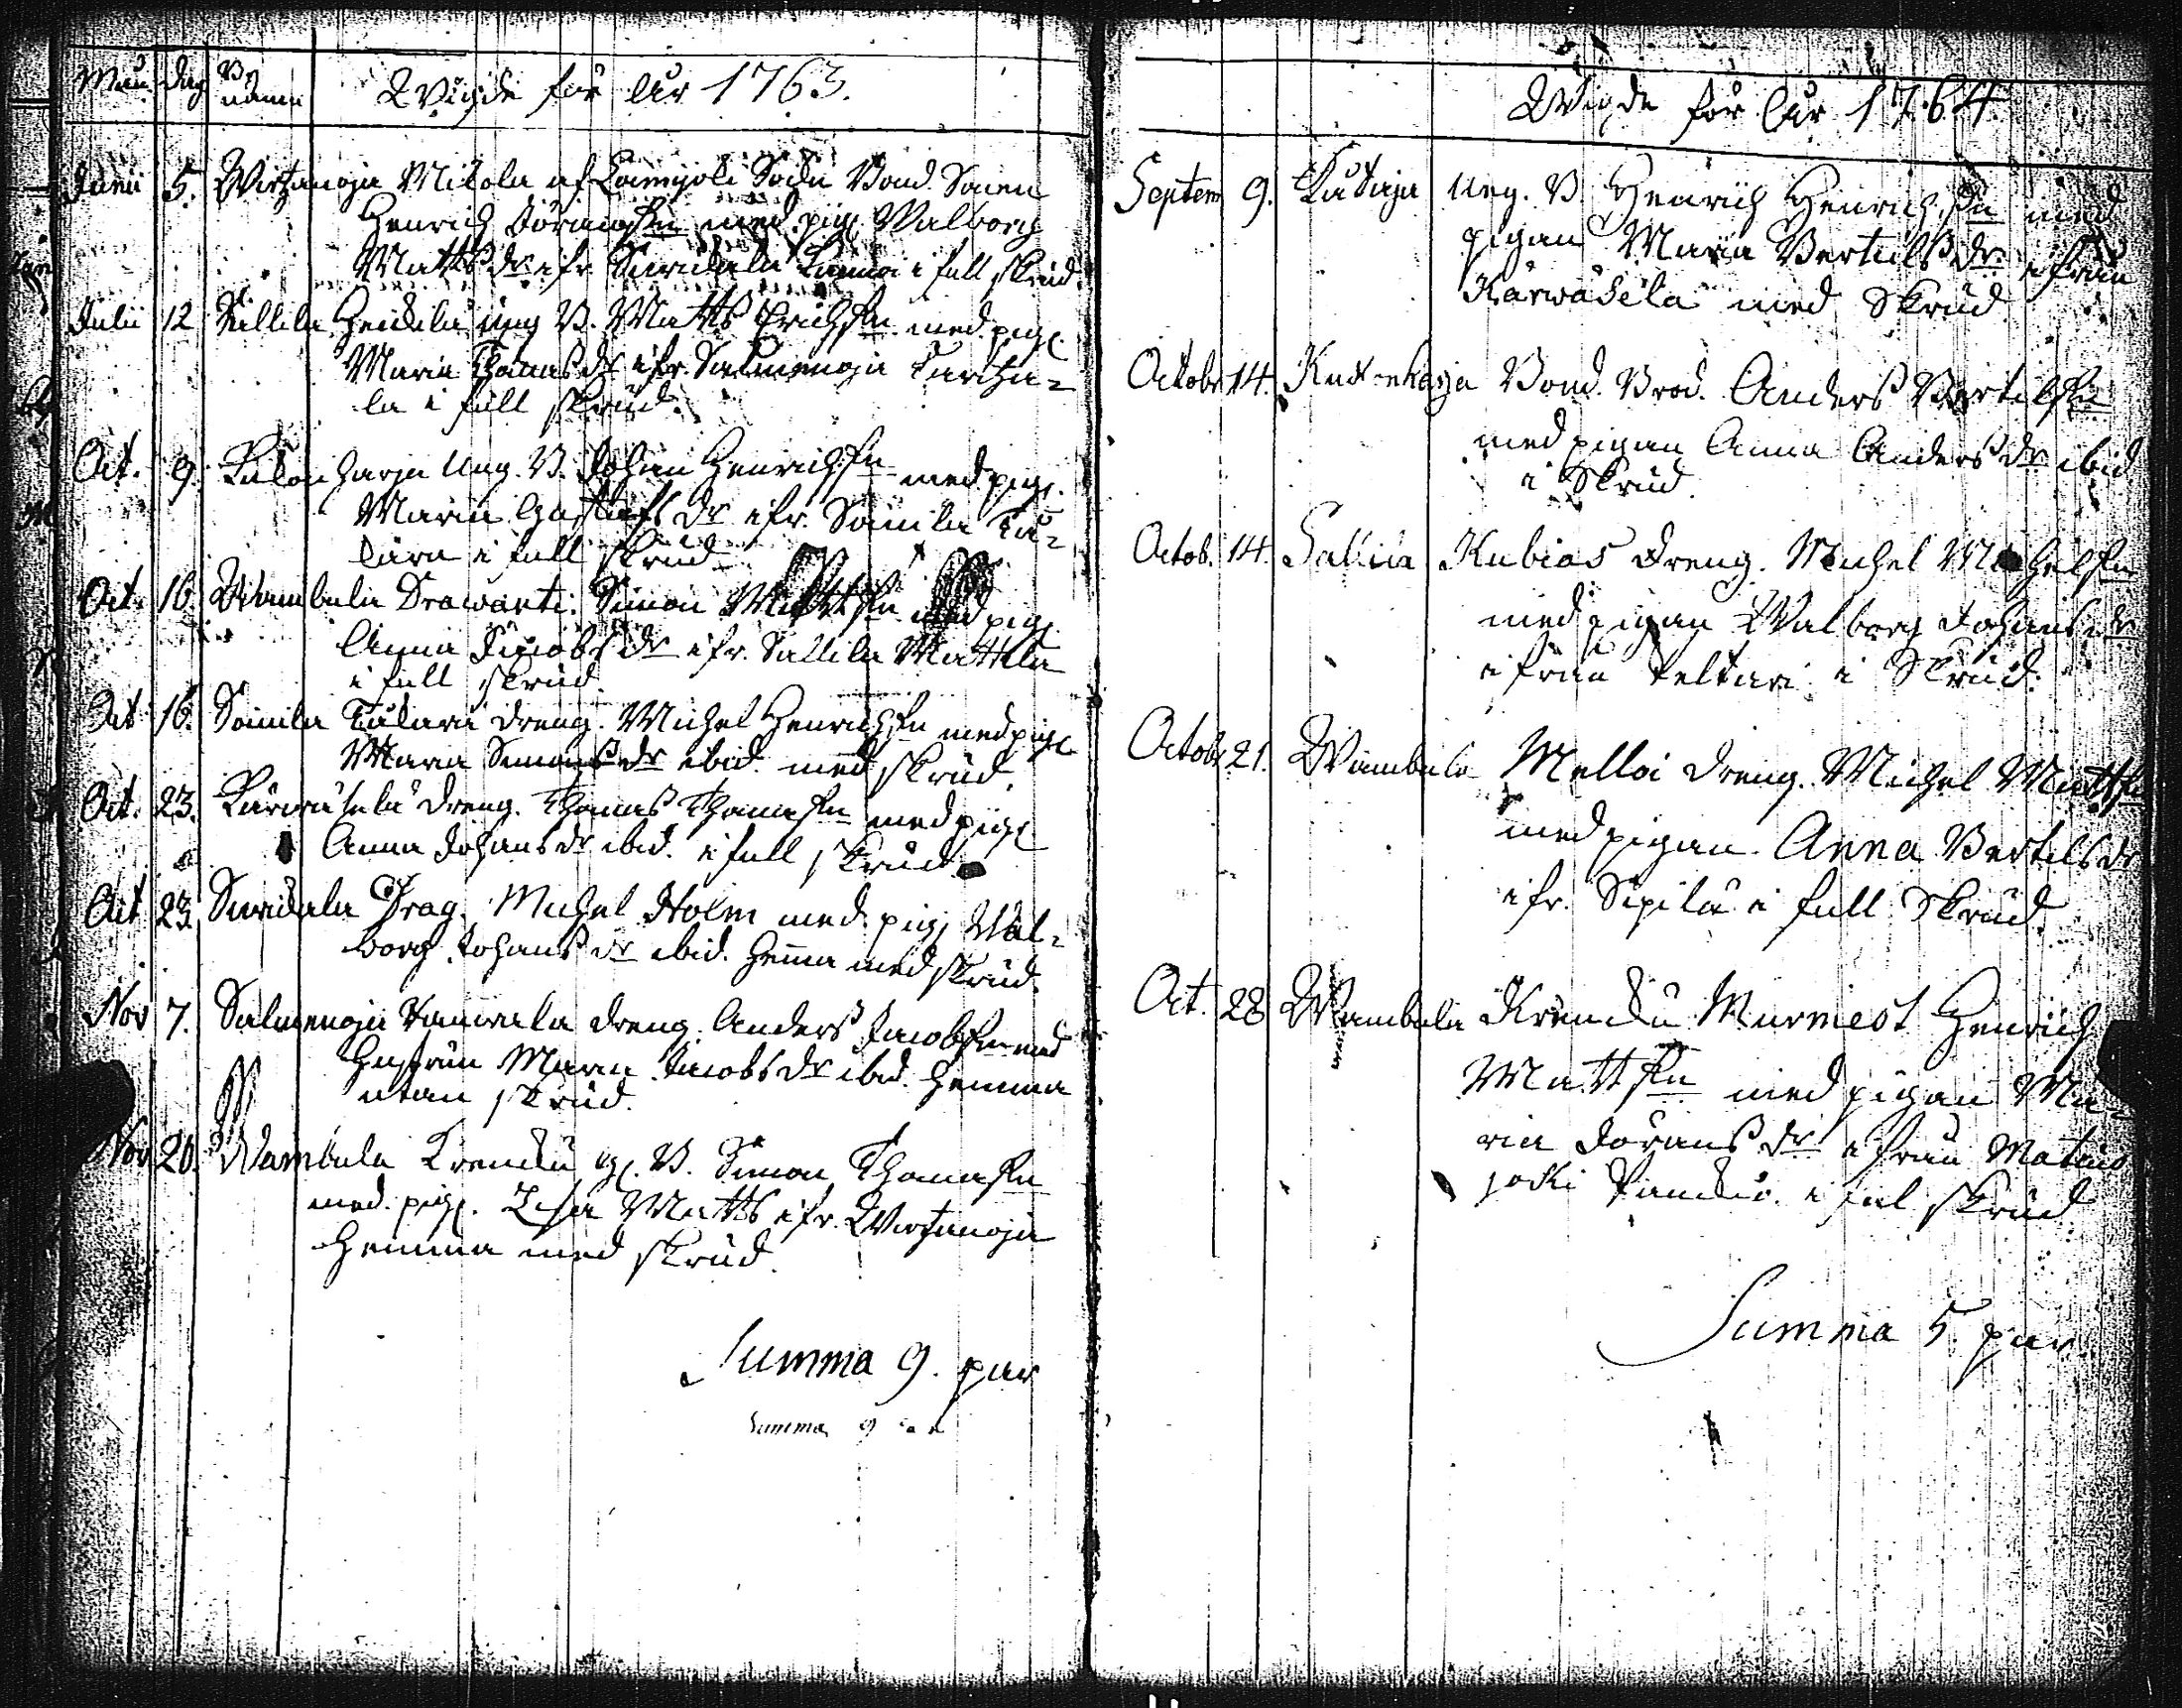 Mån. Dag B. namn Wigde för år 1763.
Junii 5. Wirtzanoja Mikola af Loimijoki Sokn Bond. Sonen
Henrich Jöransson med pig. Walborg
Matts dr ifr. Suridala i full skrud.
Julii 12 Sallila Heickilä ung B. Matts Erichsson med pig.
Maria Thomas dr ifr. Salmenoja Kuritza=
la i full skrud.
Oct. 9. Kakonharja Ung. B. Johan Henrichsson med pig.
Maria Gustafs dr ifr. Soinila Ta=
lara i full skrud
Oct. 16. Wambula Drawanti. Simon Mattsson med pig.
Anna Jacobs dr ifr. Sallila Mattila
i full skrud.
Oct 16. Soinila Talara dreng. Michel Henrichsson med pig.
Maria Simons dr ibid. med skrud.
Oct. 23. Kärwäselä dreng. Thomas Thomasson med pig.
Anna Johans dr ibid. i full skrud.
Oct 23. Suridala Drag. Michel Holm med pig. Wal=
borg Johans dr ibid. hema med skrud.
Nov 7. Salmenoja dreng. Anders Jacobsson med
Hustrun Maria Jacobs dr ibid. hemma
utan skrud.
Nov 20. Wambula Krenkü g. B. Simon Thomasson
med pig. Lisa Matts ifr. Wirtzanoja
hemma med skrud.
Summa 9. par
Summa 9
Wigde för år 1764.
Septem 9. Kutaja Ung. B Henrich Henrichsson med
pigan Maria Bertils dr ifrån
Kärwäselä med Skrud
Octobr 14. Bond. Brod. Anders Bertilsson
med pigan Anna Anders dr ibid
i Skrud.
Octob. 14. Sallila Kubias dreng. Michel Michelsson
med pigan Walborg Johans dr
ifrån Keltari i Skrud.
Octobr 21. Wambula Melloi dreng. Michel Mattsson
med pigan Anna Bertils dr
ifr. Sipilä i full Skrud.
Oct. 28 Wambula Krenckü Murmest Henrich
Mattsson med pigan Ma=
ria Jörans dr ifrån Matkus
joki i ful skrud
Summa 5. par.